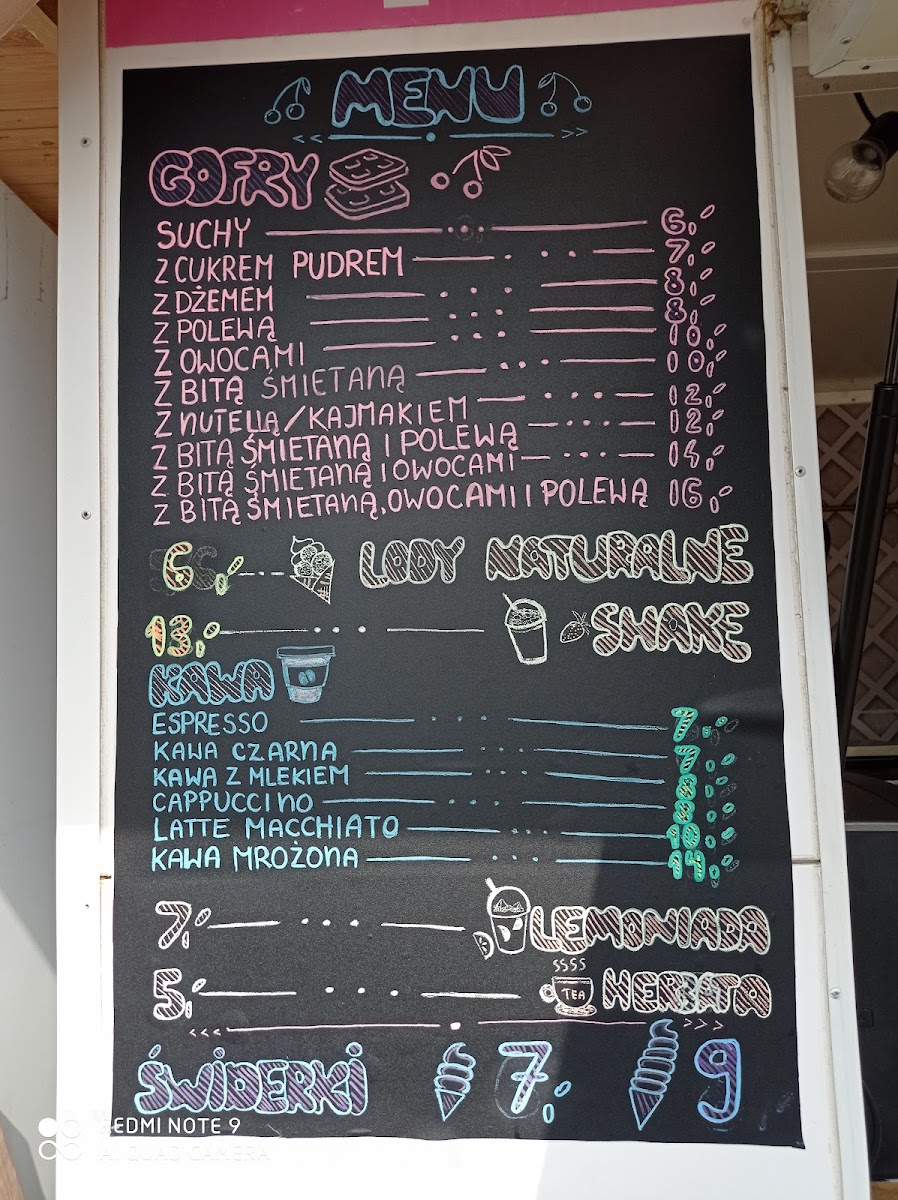 MENU
GOFRY
SUCHY 6,-
Z CUKREM PUDREM 7,-
Z DŻEMEM 8,-
Z POLEWĄ 8,-
Z OWOCAMI 10,-
Z BITĄ ŚMIETANĄ 10,-
Z NUTELLĄ/KAJMAKIEM 12,-
Z BITĄ ŚMIETANĄ I POLEWĄ 12,-
Z BITĄ ŚMIETANĄ I OWOCAMI 14,-
Z BITĄ ŚMIETANĄ, OWOCAMI I POLEWĄ 16,-
6,- LODY NATURALNE
13,- SHAKE
KAWA
ESPRESSO 7,-
KAWA CZARNA 7,-
KAWA Z MLEKIEM 8,-
CAPPUCCINO
LATTE MACCHIATO 10,-
KAWA MROŻONA
7,- LEMONIADA
5,- TEA HERBATA
ŚWIDERKI 7,- 9
REDMI NOTE 9
AI QUAD CAMERA